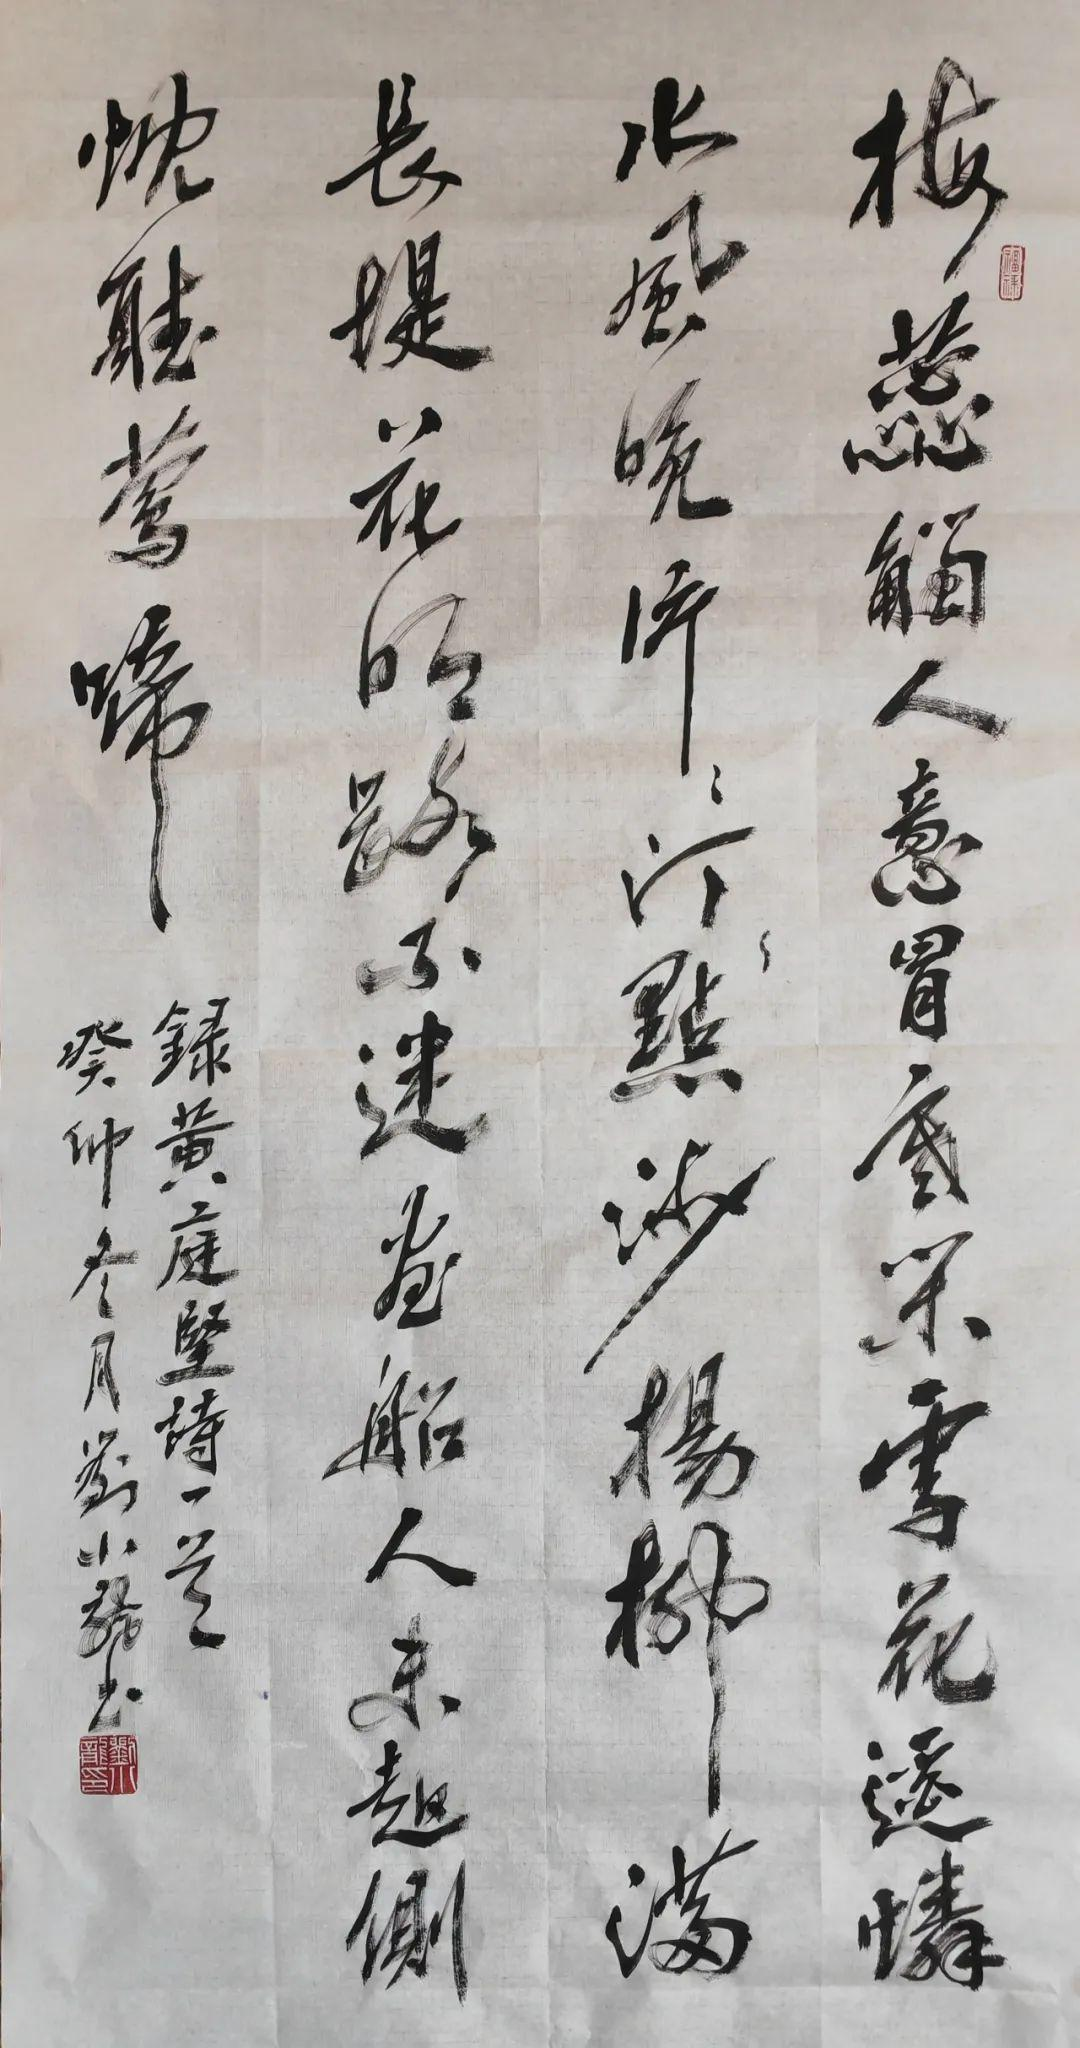 梅蕊觸人意冒寒開雪花遥憐
水風晚片〻汀點沙楊柳滿
長堤花明路不迷畫船人未起側
枕聽鶯啼
録黄庭堅詩一首
癸卯冬月劉小龍書
劉小龍印